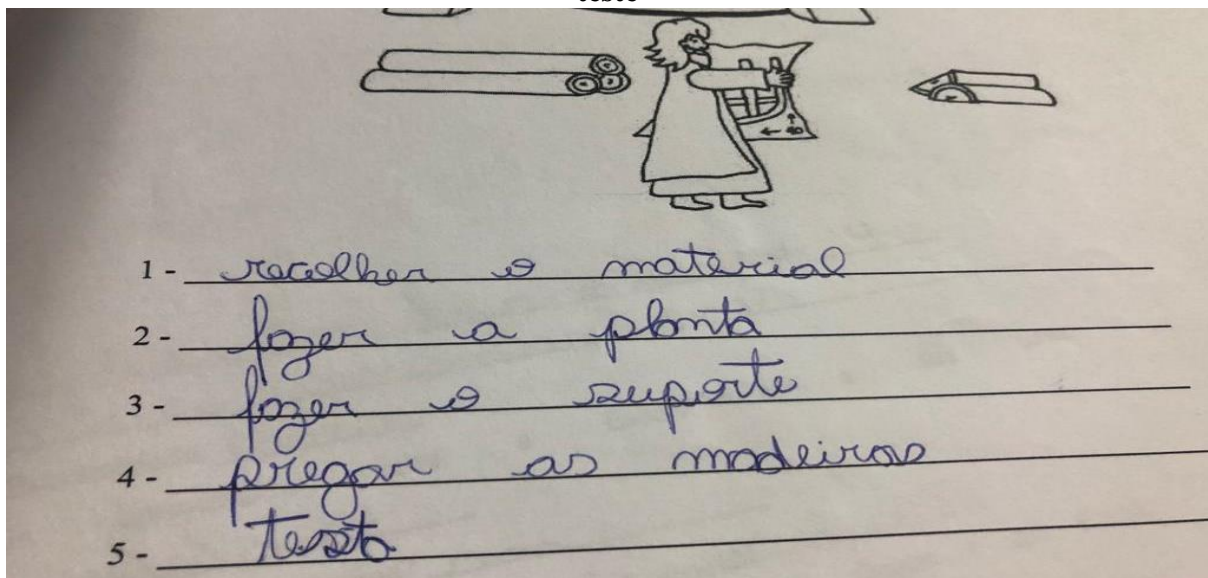 1 - recolher o material
2 - fazer a planta
3 - fazer o suporte
4 - pregar as madeiras
5 - testo